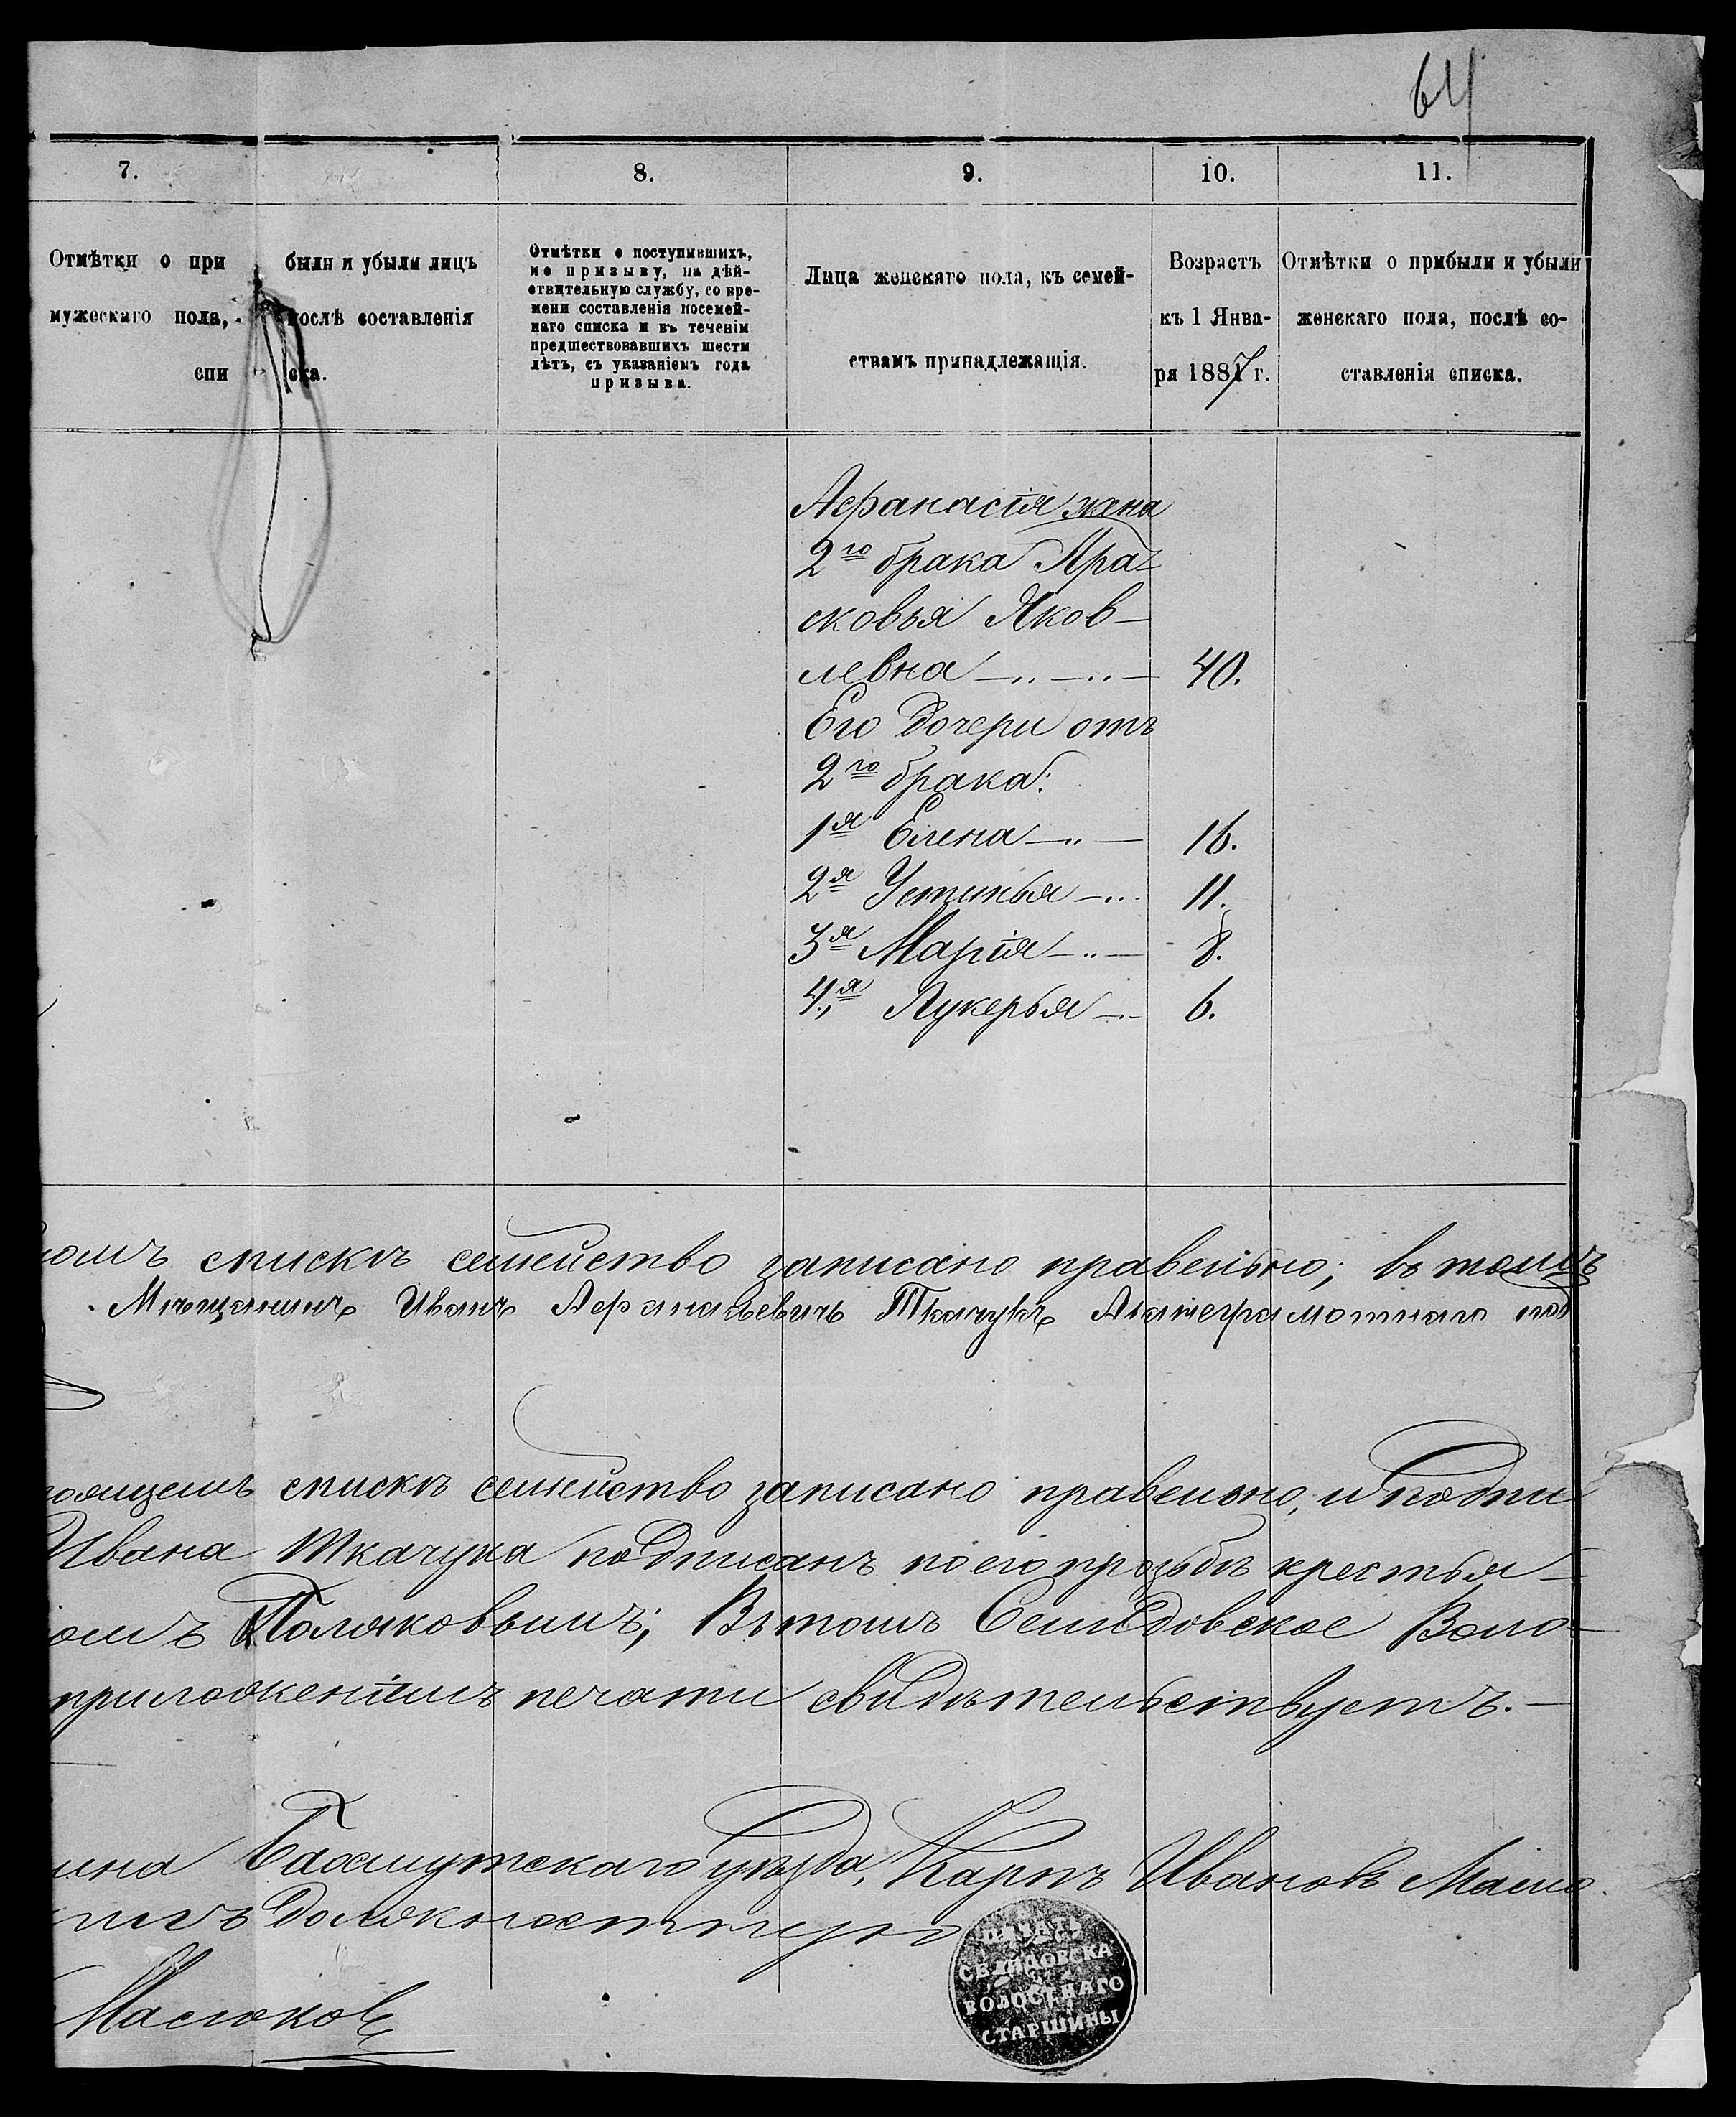 64
7.
8.
9.
10.
11.
Отмѣтки о при были и убыли лицъ
мужескаго пола, послѣ составленія
спи ска.
Отмѣтки о поступившихъ,
по призыву, на дѣй-
ствительную службу, со вре-
мени составленія посемей-
наго списка и въ теченіи
предшествовавшихъ шести
лѣтъ, съ указаніемъ года
призыва.
Лица женскаго пола, къ семей-
ствамъ принадлежащія.
Возрастъ
къ 1 Янва-
ря 1887 г.
Отмѣтки о прибыли и убыли
женскаго пола, послѣ со-
ставленія списка.
Афанасія жена
2го брака Пра-
сковья Яков-
левна 40.
Его дочери отъ
2го брака:
1я Елена 16.
2я Устинья 11.
3я Марія 8.
4я Лукерья 6.
омъ спискѣ семейство записано правельно; въ томъ
Мѣщанинъ Иванъ Афанасьевичъ Ткачукъ
оящемъ спискѣ семейство записано правельно, и подпи
Ивана Ткачука подписанъ по его прозьбѣ крестья-
омъ Поляковымъ; Въ томъ Селидовское Воло-
приложеніемъ печати свидѣтельствуетъ.
ина Бахмутскаго уѣзда, Карпъ Ивановъ Масю
Масюковъ
ПЕЧАТЬ
СЕЛИДОВСКА
ВОЛОСТНАГО
СТАРШИНЫ